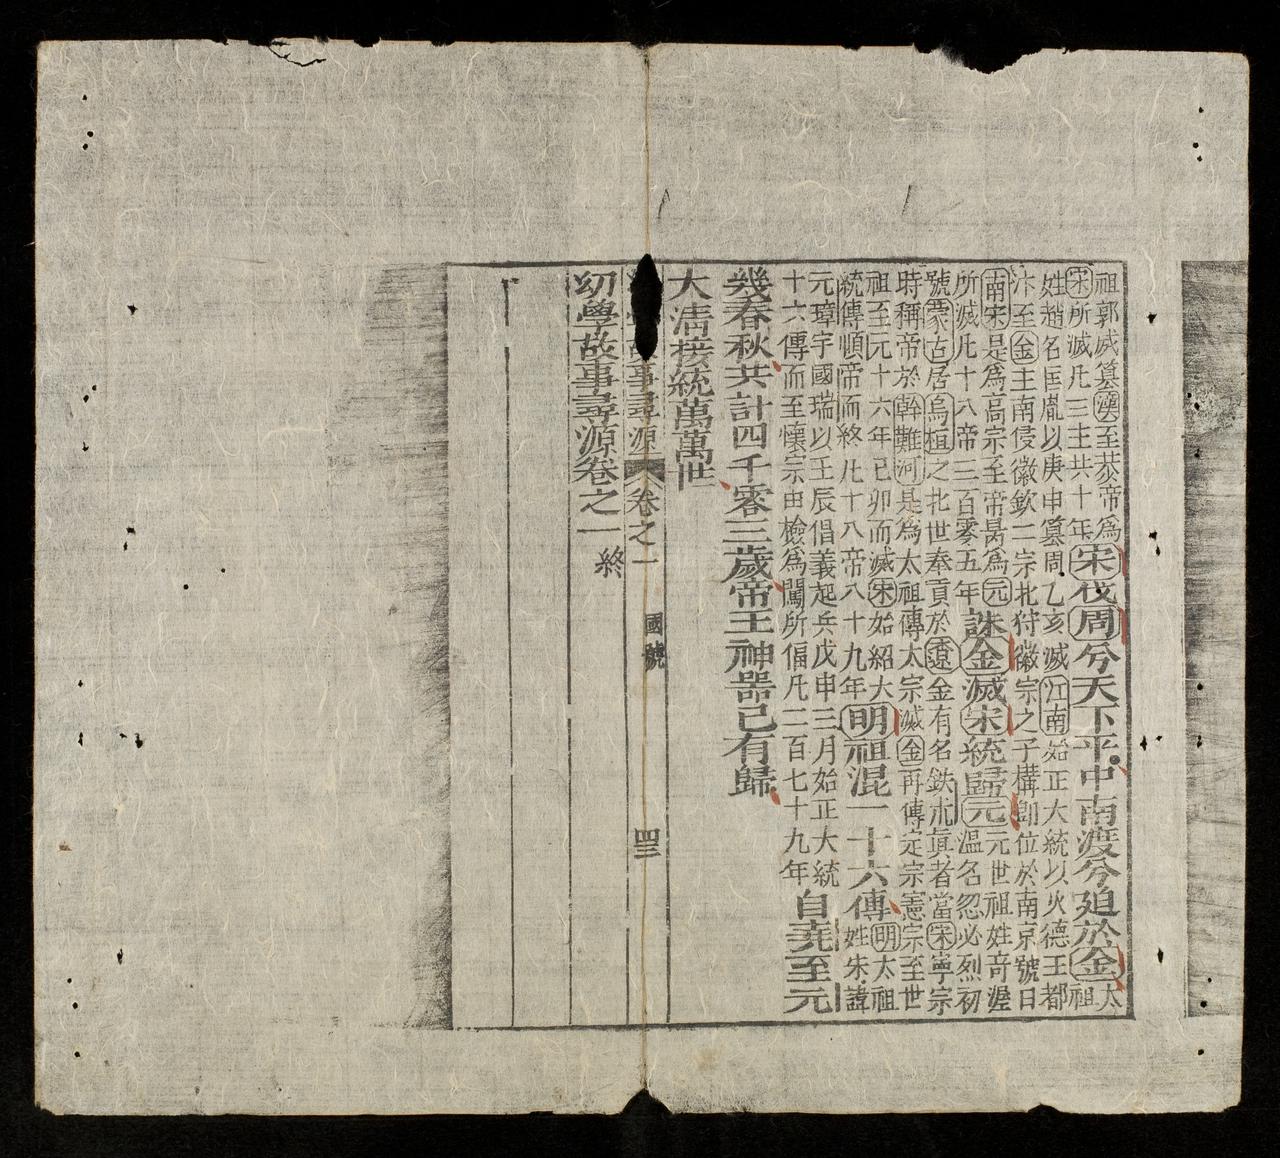 祖郭威篡漢至恭帝爲
宋所滅凡三主共十年
宋伐周兮天下平中南渡兮廹於金
太
祖
姓趙名匡胤以庚申篡周乙亥滅江南始正大統以火德王都
汴至金主南侵徽欽二宗北狩徽宗之子構卽位於南京號曰
南宋是爲高宗至帝昺爲元
所滅凡十八帝三百零五年
誅金滅宋統歸元
元世祖姓竒渥
溫名忽必烈初
號蒙古居烏桓之北世奉貢於遼金有名鉄朮眞者當宋寧宗
時稱帝於幹難河是爲太祖傳太宗滅金再傳定宗憲宗至世
祖至元十六年己卯而滅宋始紹大
統傳順帝而終凡十八帝八十九年
明祖混一十六傳
明太祖
姓朱諱
元璋字國瑞以壬辰倡義起兵戊申三月始正大統
十六傳而至懷宗由檢爲闖所偪凡二百七十九年
自堯至元
幾春秋共計四千零三歲帝王神器已有歸
大清接統萬萬世
故事尋源 卷之一 國號 四三
幼學故事尋源卷之一終